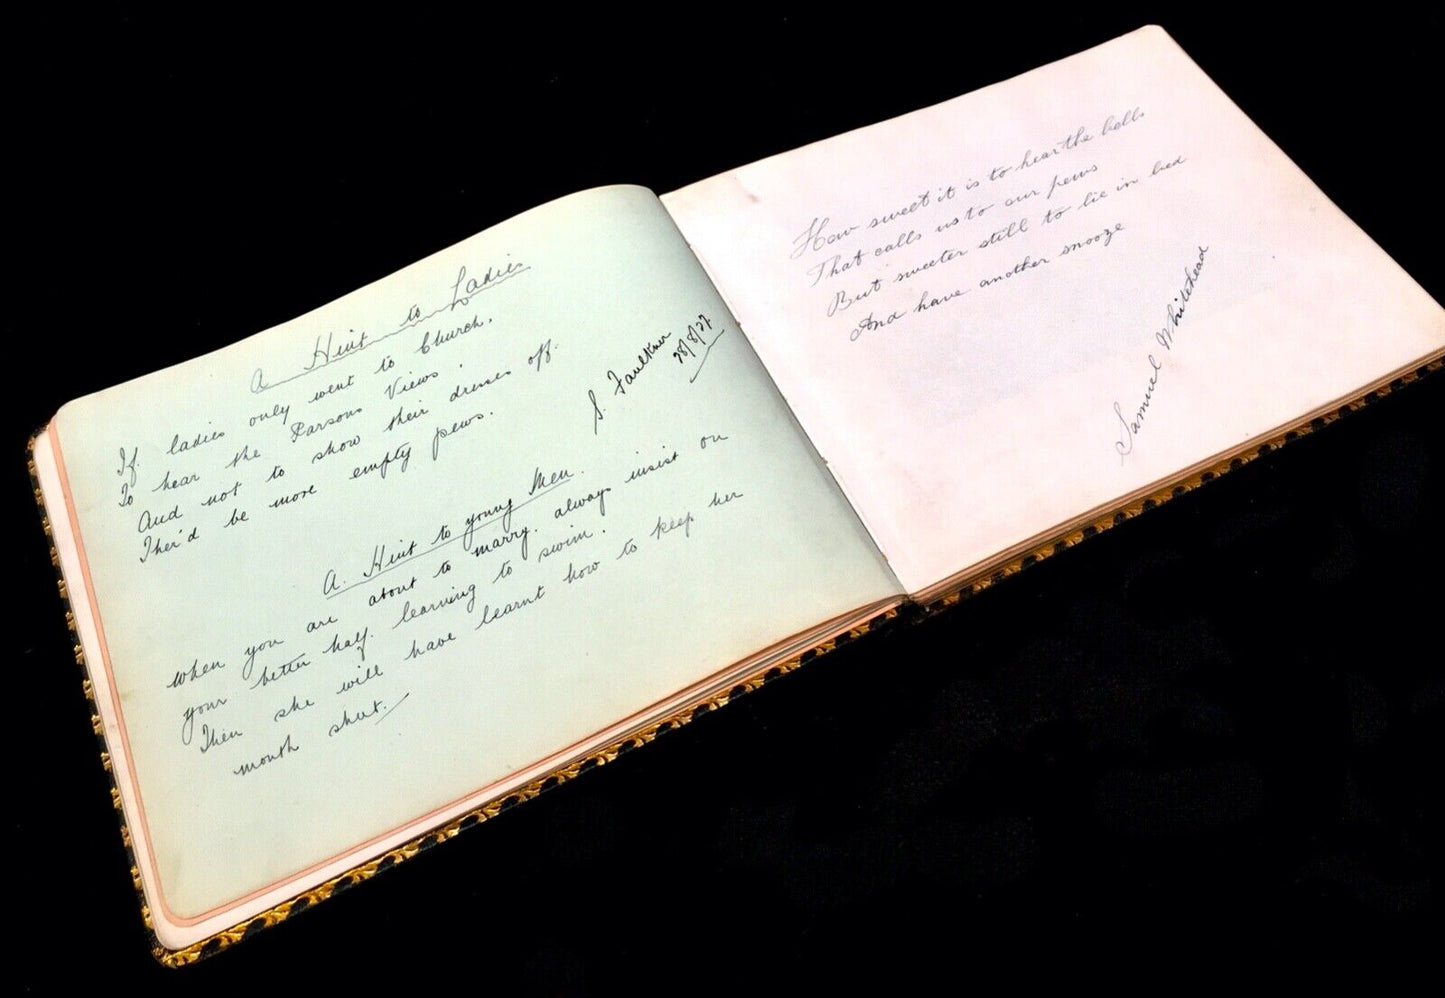 A Hint to Ladies
If ladies only went to Church.
To hear the Parsons Views.
And not to show their dresses off.
Ther'd be more empty pews.
S. Faulkner
28/8/27.
A. Hint to young Men.
When you are about to marry. always insist on
your better half. learning to swim.
Then she will have learnt how to keep her
mouth shut.
How sweet it is to hear the bells
That calls us to our pews
But sweeter still to lie in bed
And have another snooze
Samuel Whitehead